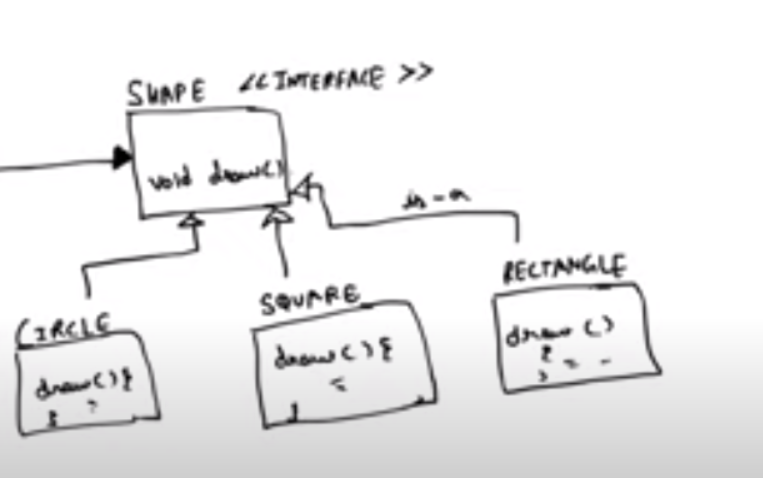 SHAPE <<INTERFACE >>
void draw()
is-a
CIRCLE
draw(){
}
SQUARE
draw(){
}
RECTANGLE
draw()
{
}